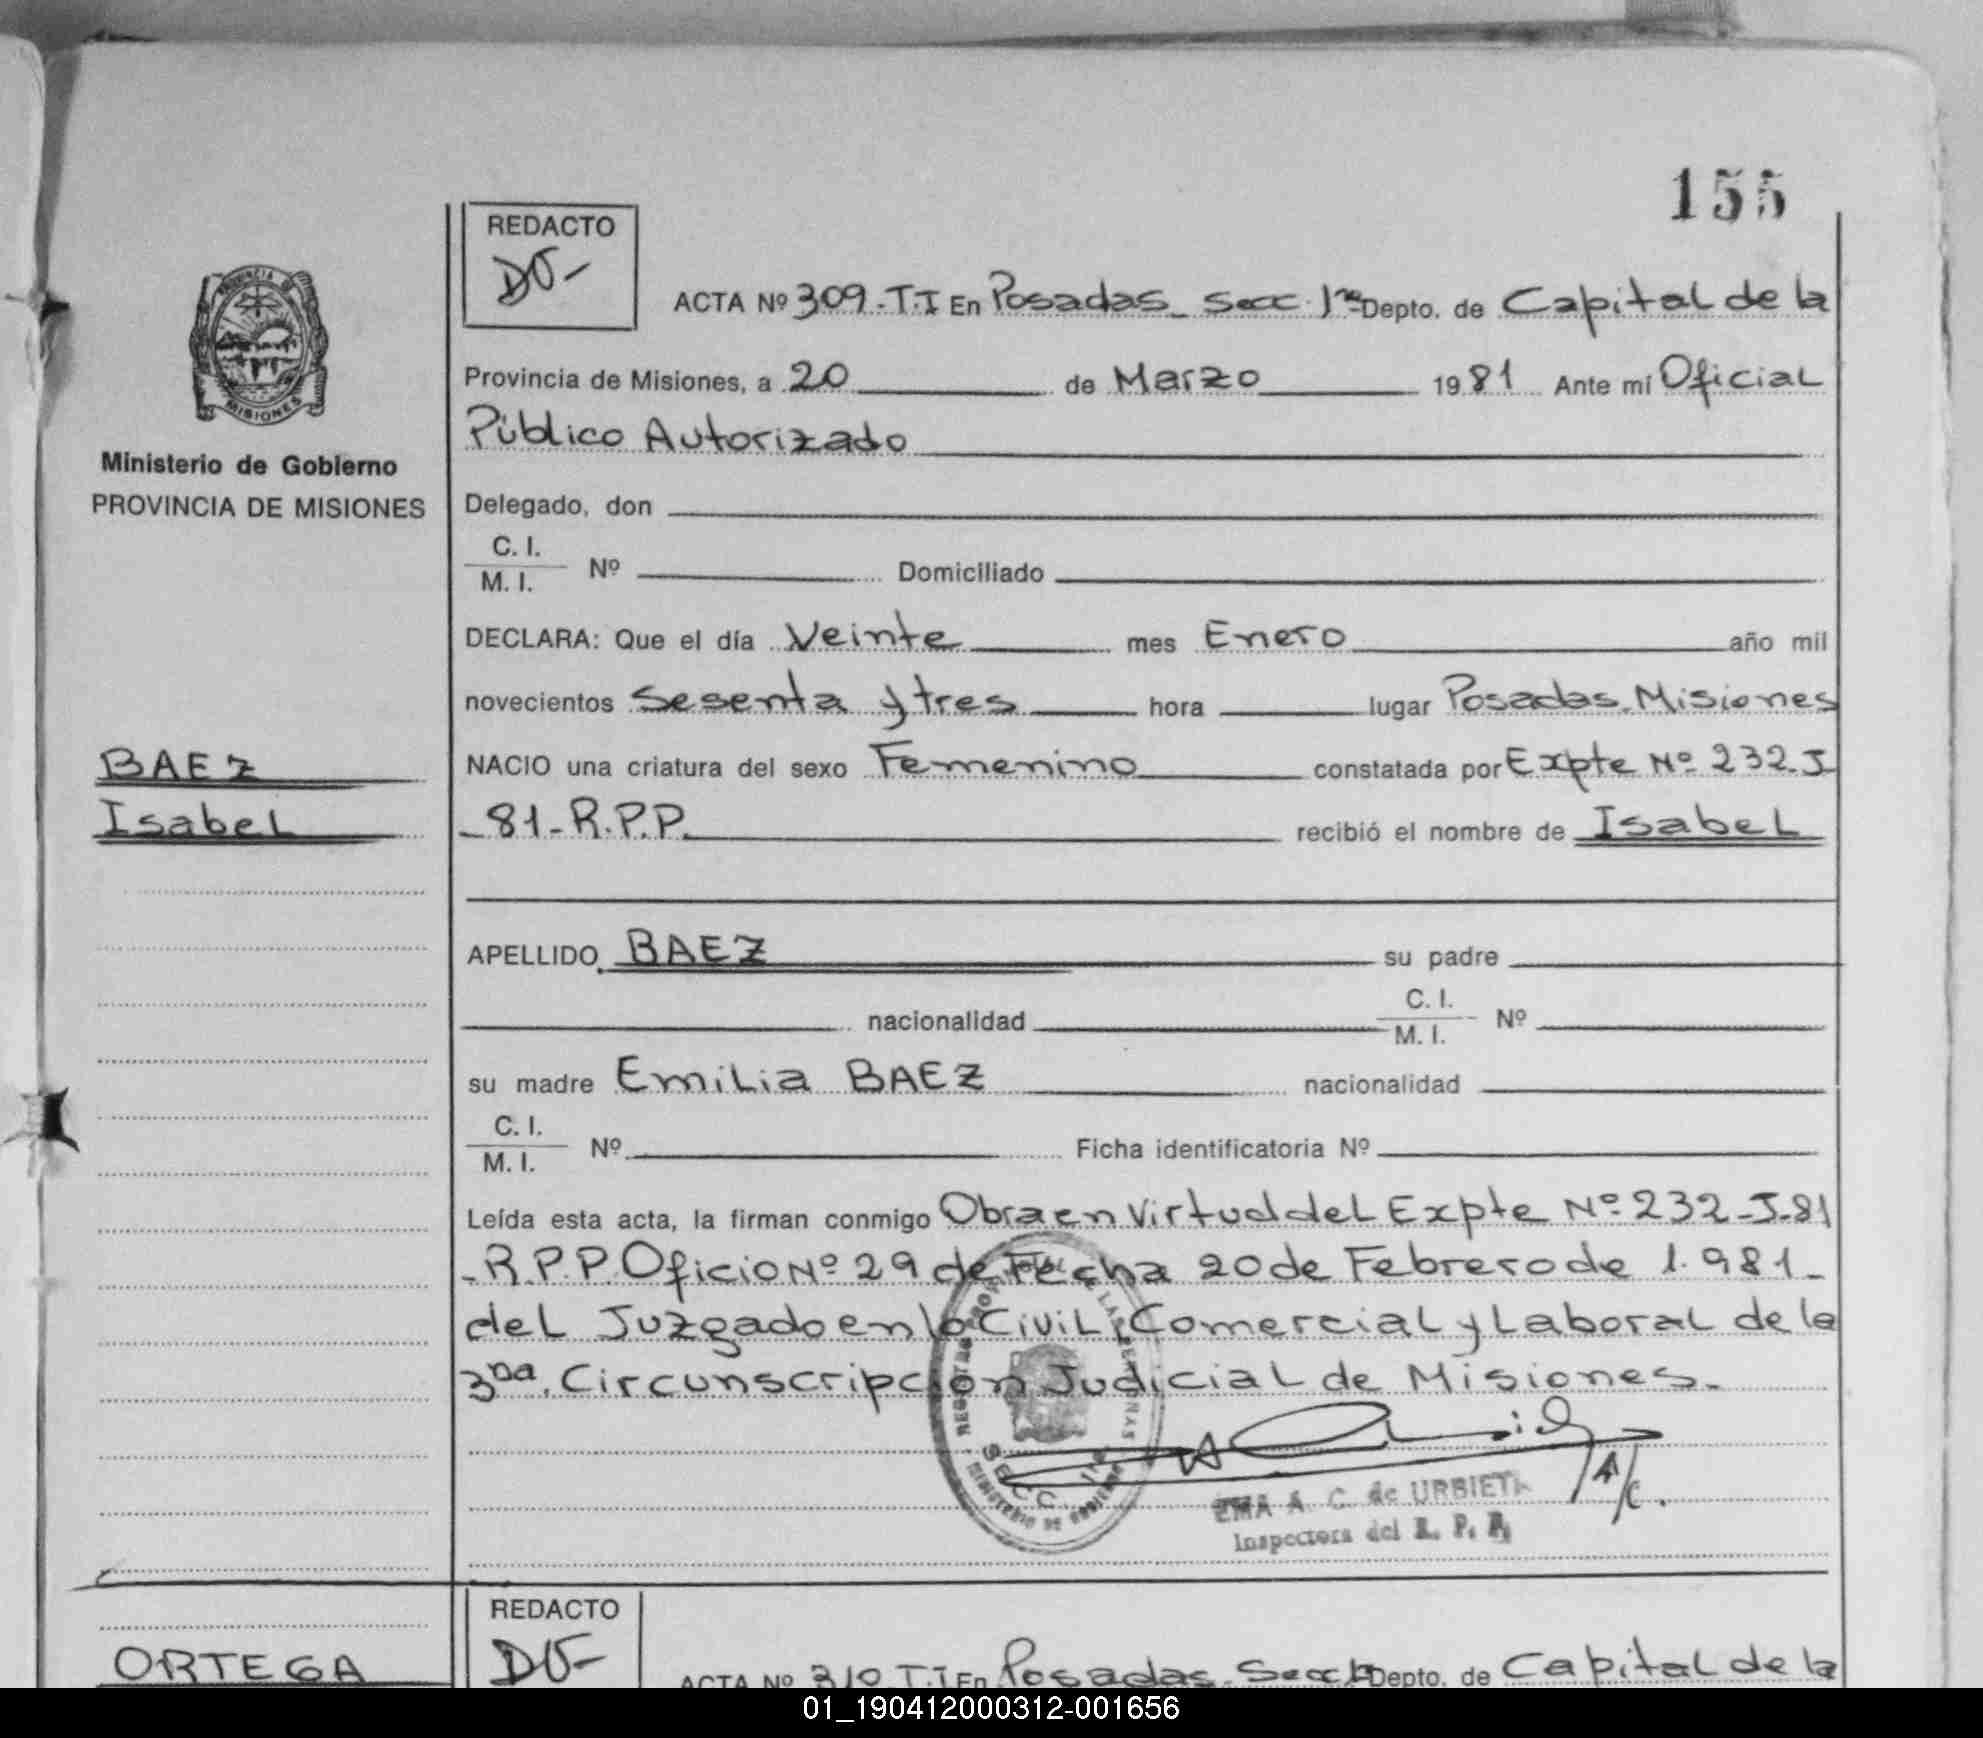 155
REDACTO
DO-
ACTA Nº 309-T.I En Posadas_ Secc. 1ra Depto. de Capital de la
PROVINCIA
MISIONES
Provincia de Misiones, a 20 de Marzo 1981 Ante mi Oficial
Público Autorizado
Ministerio de Gobierno
PROVINCIA DE MISIONES
Delegado, don
C. I.
M. I. Nº Domiciliado
DECLARA: Que el día Veinte mes Enero año mil
novecientos Sesenta y tres hora lugar Posadas. Misiones
BAEZ
Isabel
NACIO una criatura del sexo Femenino constatada por Expte Nº 232-J
-81-R.P.P. recibió el nombre de Isabel
APELLIDO BAEZ su padre
nacionalidad C. I.
M. I. Nº
su madre Emilia BAEZ nacionalidad
C. I.
M. I. Nº Ficha identificatoria Nº
Leída esta acta, la firman conmigo Obra en Virtud del Expte Nº 232-J-81
-R.P.P. Oficio Nº 29 de Fecha 20 de Febrero de 1.981-
del Juzgado en lo Civil, Comercial y Laboral de la
3na. Circunscripción Judicial de Misiones.-
SECC. 1ra
MINISTERIO DE GOBIERNO
EMA A. C. de URBIETA
Inspectora del R. P. P.
A/C.
ORTEGA
REDACTO
DO-
ACTA Nº 310 T.I En Posadas. Secc 1ra Depto. de Capital de la
01_190412000312-001656